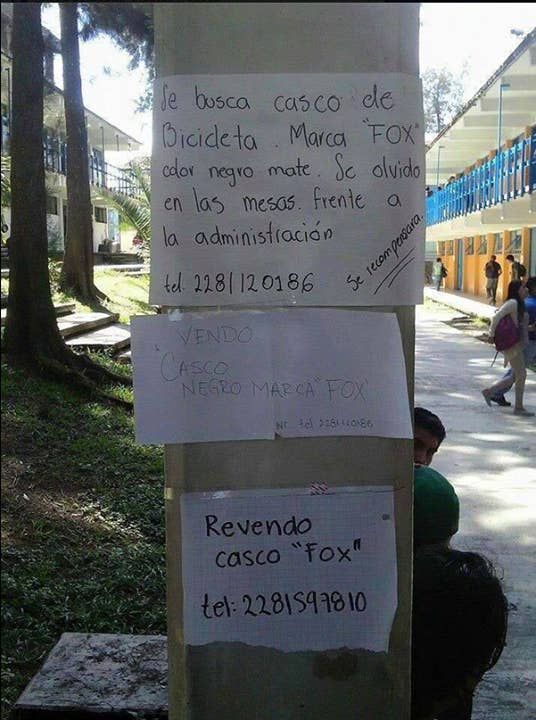 Se busca casco de
Bicicleta. Marca "FOX"
color negro mate. Se olvido
en las mesas. frente a
la administración
se recompensara
tel. 2281120186
VENDO
"CASCO
NEGRO MARCA "FOX"
Nr. tel 2281120186
Revendo
casco "Fox"
tel: 2281597810